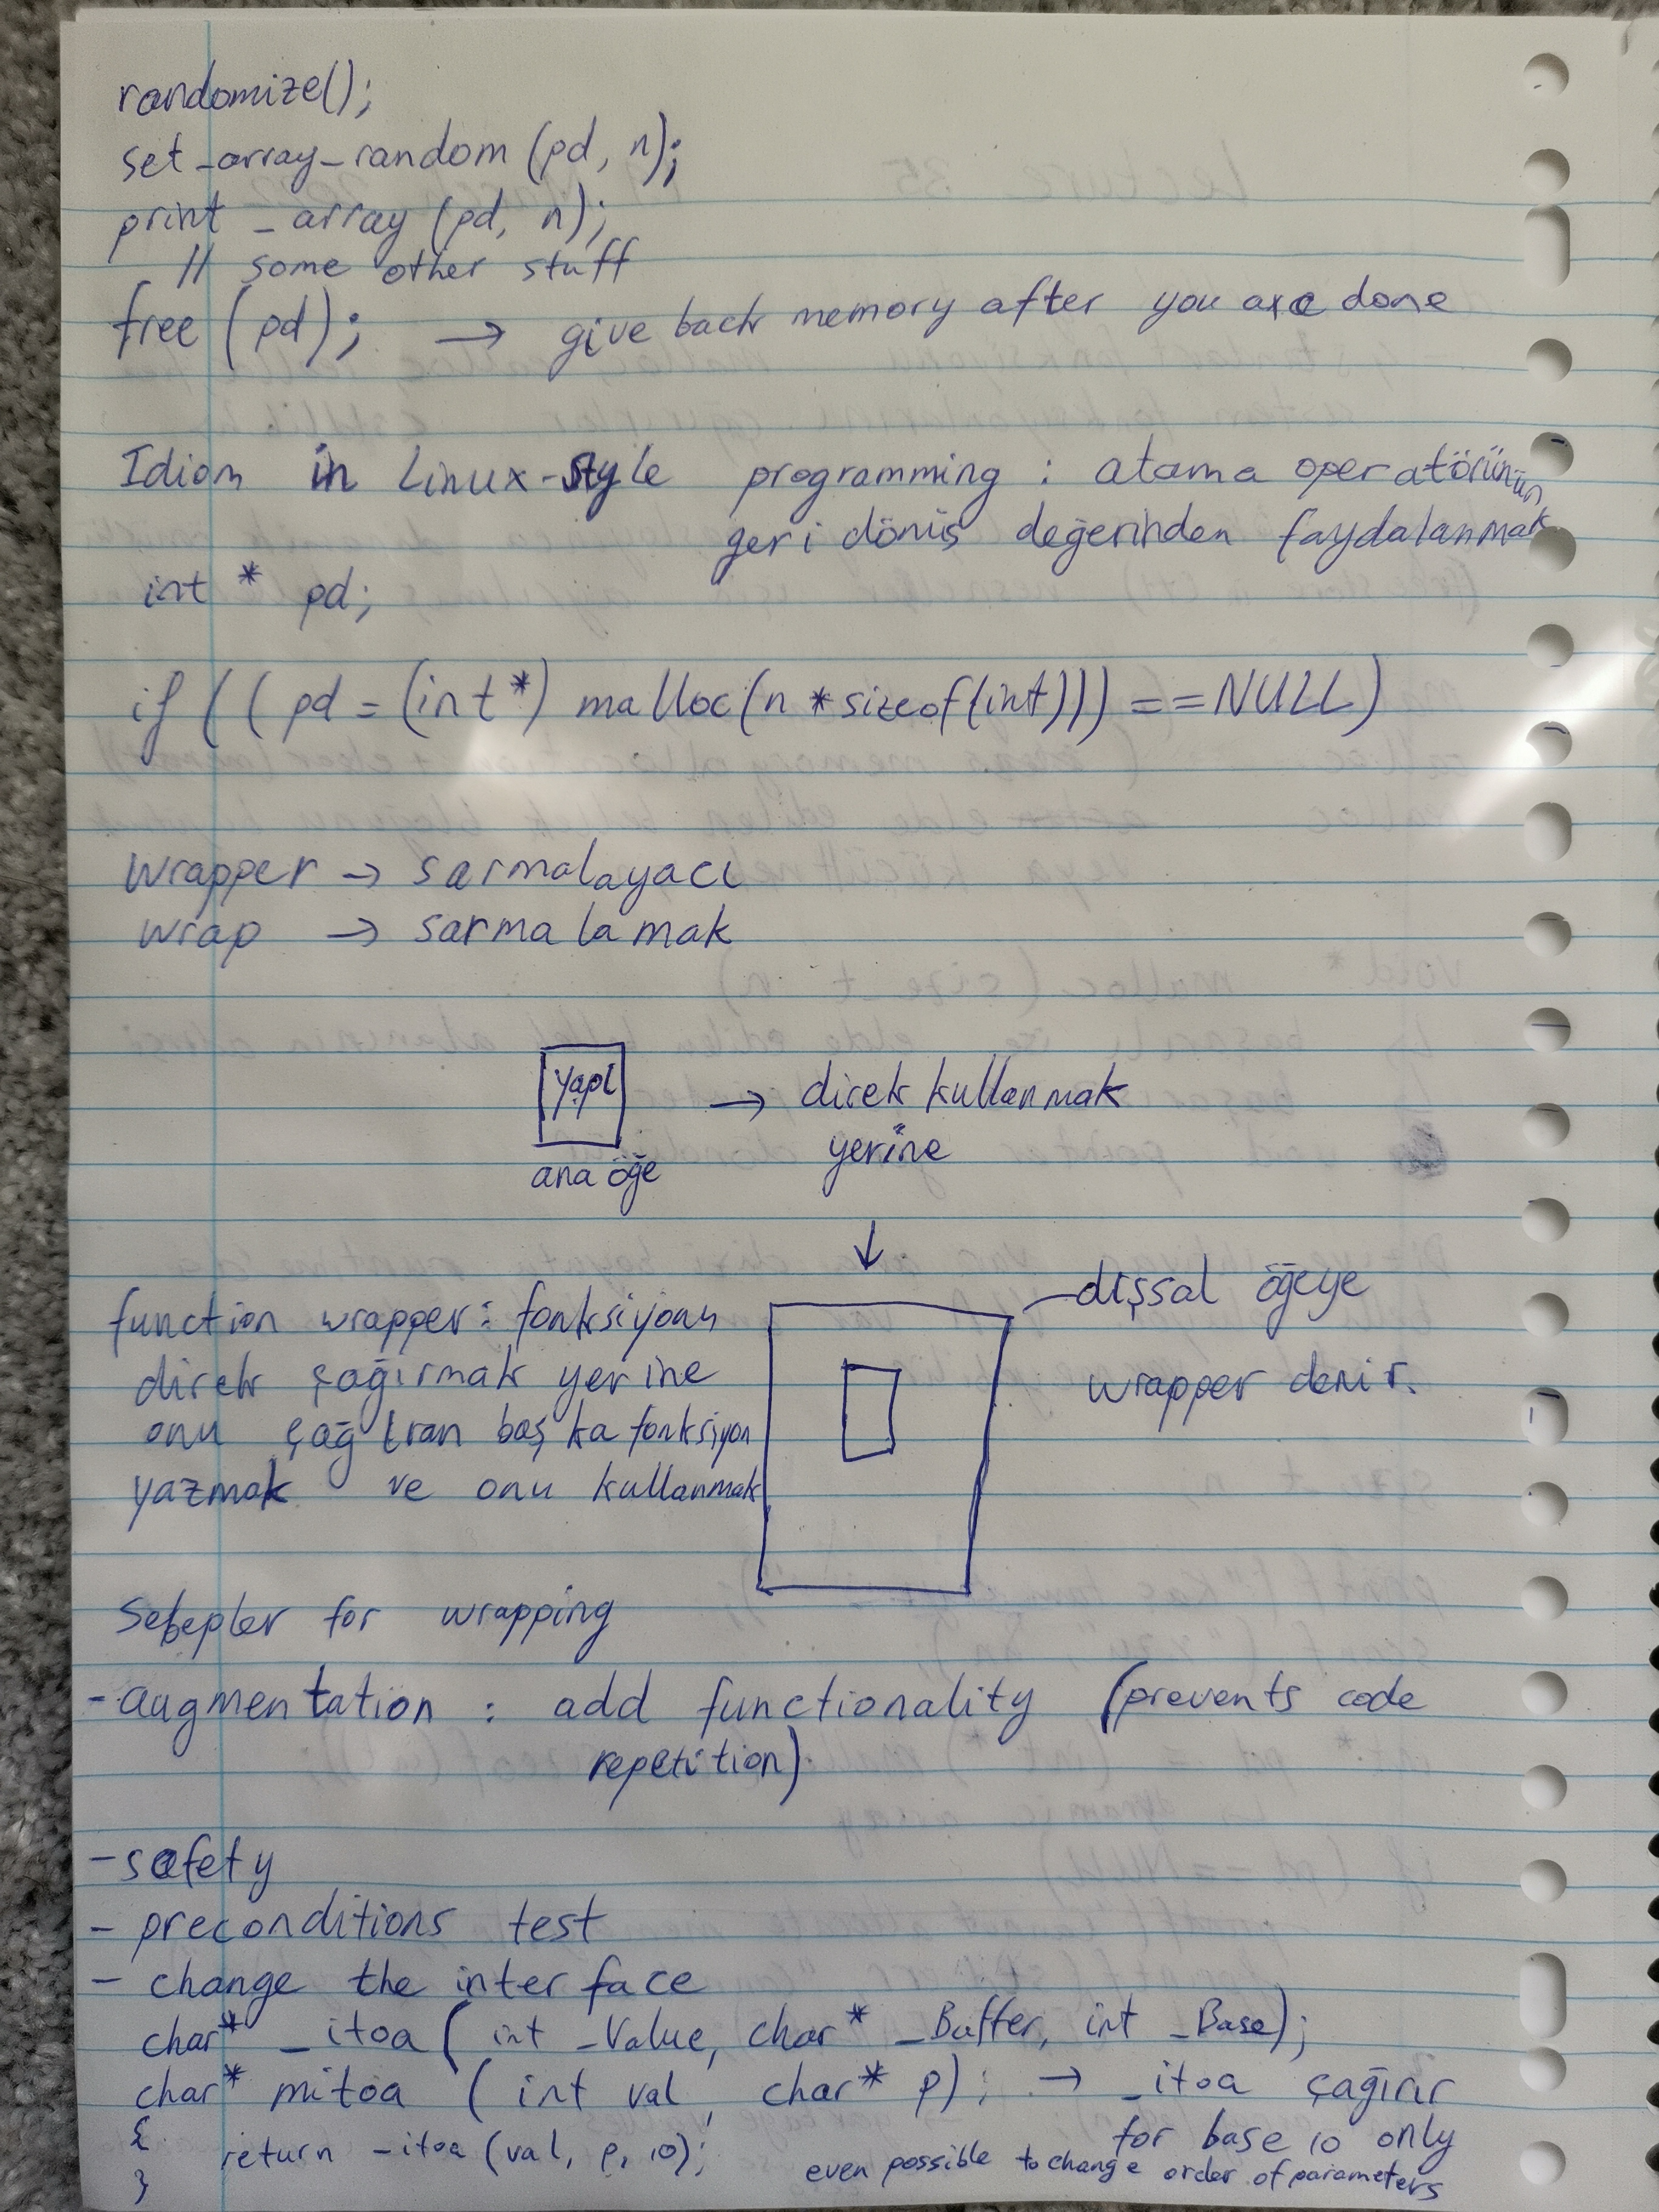 randomize();
set_array_random (pd, n);
print_array (pd, n);
// some other stuff
free (pd); → give back memory after you are done
Idiom in Linux-style programming : atama operatörünün
geri dönüş değerinden faydalanmak
int * pd;
if ((pd = (int*) malloc(n * sizeof(int))) == NULL)
wrapper → sarmalayacı
wrap → sarmalamak
yapı → direk kullanmak
ana öğe yerine
↓
dışsal öğeye
wrapper denir.
function wrapper: fonksiyonu
direk çağırmak yerine
onu çağıran başka fonksiyon
yazmak ve onu kullanmak
Sebepler for wrapping
- augmentation : add functionality (prevents code
repetition).
- safety
- preconditions test
- change the interface
char* _itoa ( int _Value, char* _Buffer, int _Base);
char* mitoa ( int val, char* p); → _itoa çağırır
{ for base 10 only
return _itoa (val, p, 10); even possible to change order of parameters
}